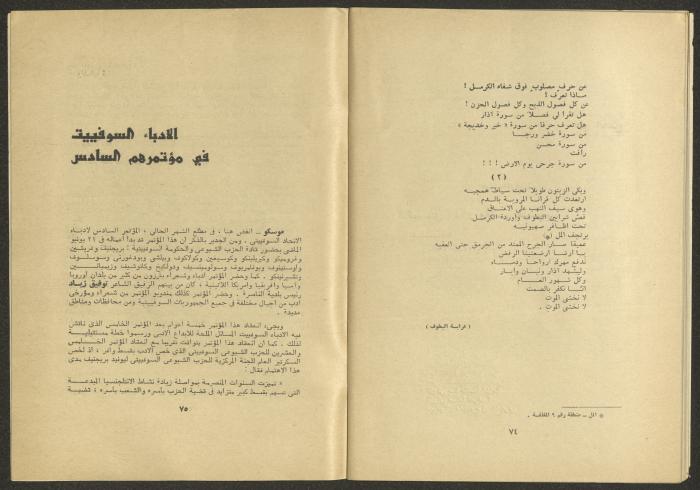 عن حرف مصلوب فوق شفاه الكرمل !
ماذا تعرف !
عن كل فصول الذبح وكل فصول الحزن !
هل تقرأ لي فصلا من سورة آذار
هل تعرف حرفا من سورة « خير وخديجة »
من سورة خضر ورجا
من سورة محسن
رأفت
من سورة جرحى يوم الارض ! ! !
( ٢ )
وبكى الزيتون طويلا تحت سياط همجيه
ارتعدت كل قرانا المروية بالدم
وهوى سيف النهب على الاعناق
قص شرايين البطوف وأوردة الكرمل
تحت اظافر صهيونيه
يرتجف المل (*)
عميقا صار الجرح الممتد من الجرمق حتى العقبه
يا أرضا أرضعتينا الرفض
ندفع مهرك أرواحا ودماء
وليشهد آذار ونيسان وأيار
وكل شهور العام
انا نكفر بالصمت
لا نخشى الموت
لا نخشى الموت .
( عرابة البطوف )
* المل ــ منطقة رقم ٩ المغلقة .
٧٤
الادباء السوفييت
في مؤتمرهم السادس
موسكو ــ انعقد هنا ، في مطلع الشهر الحالي ، المؤتمر السادس لادباء
الاتحاد السوفييتي . ومن الجدير بالذكر أن هذا المؤتمر قد بدأ أعماله في ٢١ يونيو
الماضي بحضور قادة الحزب الشيوعي والحكومة السوفييتية : بريجنيف وغريشين
وغروميكو وكيريلينكو وكوسيغين وكولاكوف وبيلشي وبودغورني وسوسلوف
واوستينوف وديميتشيف وسولومينتسيف ودولغيخ وكاتوشيف وزيميانين
وتشيرنينكو . كما وحضر المؤتمر ادباء وشعراء بارزون من كثير من بلدان أوروبا
وآسيا وافريقيا وامريكا اللاتينية ، كان من بينهم الرفيق الشاعر توفيق زياد
رئيس بلدية الناصرة . وحضر المؤتمر كذلك مندوبو المؤتمر من شعراء ومؤرخي
أدب من أجيال مختلفة في جميع الجمهوريات السوفييتية ومن محافظات ومناطق
عديدة .
ويجيء انعقاد هذا المؤتمر خمسة أعوام بعد المؤتمر الخامس الذي ناقش
فيه الادباء السوفييت المسائل الملحة للابداع الادبي ورسموا خطة مستقبلية
لذلك . كما أن انعقاد هذا المؤتمر يتوافق تقريبا مع انعقاد المؤتمر الخامس
والعشرين للحزب الشيوعي السوفييتي الذي خص الادب بقسط وافر ، اذ لخص
السكرتير العام للجنة المركزية للحزب الشيوعي السوفييتي ليونيد بريجنيف مدى
هذا الاهتمام فقال :
« تميزت السنوات المنصرمة بمواصلة زيادة نشاط الانتلجنسيا المبدعة
التي تسهم بقسط كبير متزايد في قضية الحزب بأسره والشعب بأسره ، قضية
٧٥